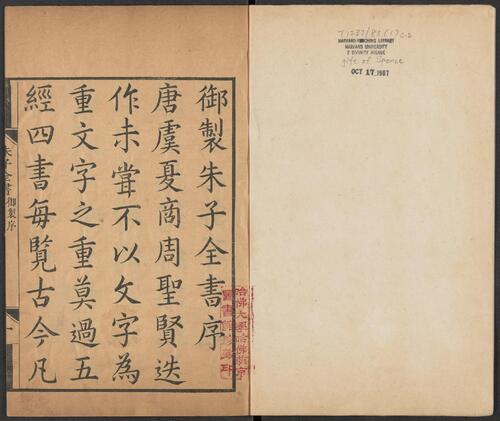 T 1237/83 (1) c.2
HARVARD-YENCHING LIBRARY
HARVARD UNIVERSITY
2 DIVINITY AVENUE
gift of Spence
OCT 17 1987
御製朱子全書序
唐虞夏商周聖賢迭
作未嘗不以文字為
重文字之重莫過五
經四書每覽古今凡
朱子全書 御製序
一
哈佛大學哈佛燕京
圖書館珍藏印